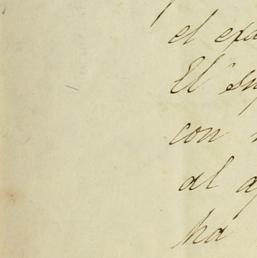 el exa
El su
con
al a
ha